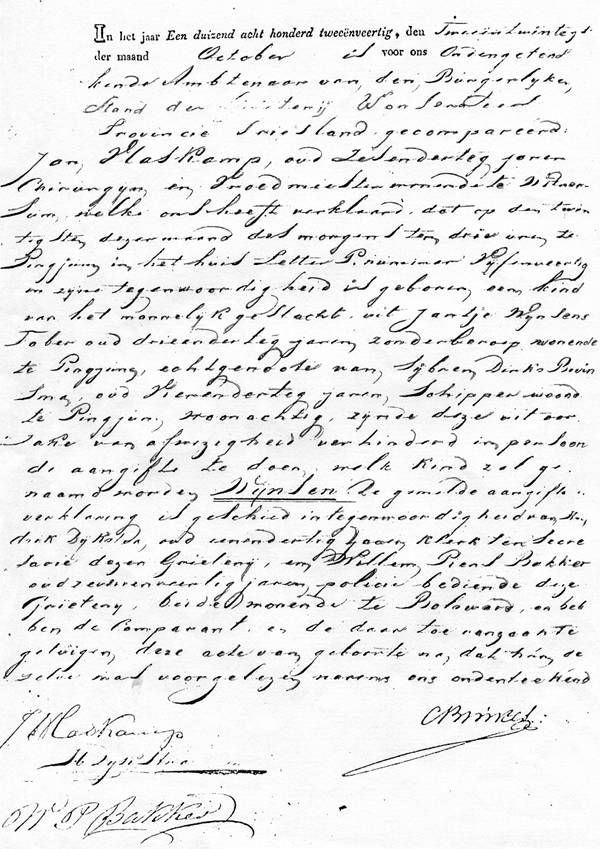 In het jaar Een duizend acht honderd tweeënveertig, den Tweeëntwintigs
der maand October is voor ons Ondergeteek
kende Ambtenaar van den Burgerlyken
Stand der Grietenij Wonseradeel
Provincie Friesland gecompareerd:
Jan Haskamp, oud zesendertig jaren
Chirurgyn en Vroedmeester wonende te Witmar
sum, welke ons heeft verklaard, dat op den twin
tigsten dezer maand des morgens ten drie uren te
Pingjum in het huis Letter P nummer Vyfenveertig
in zyne tegenwoordigheid is geboren een kind
van het mannelyk geslacht uit Jantje Wynsens
Tober oud drieendertig jaren zonder beroep wonende
te Pingjum, echtgenote van Sybren Dirks
oud Vierendertig jaren, Schipper
te Pingjum, woonachtig, zynde deze uit oor
zake van afwezigheid verhinderd in persoon
de aangifte te doen, welk kind zal ge
naamd worden Wynsen De gemelde aangifte
verklaring is geschied in tegenwoordigheid van
dirk Dykstra, oud jaren klerk ter Secre
tarie dezer Grietenij, en Willem Piers Bakker
oud zevenenveertig jaren, policie bediende dezer
Grieteny, beide wonende te Bolsward, en heb
ben de Comparant en de daar toe aangezochte
getuigen, deze acte van geboorte na dat hun de
zelve was voorgelezen nevens ons onderteekend
J Haskamp
CBrinces
H Dykstra
W P Bakker